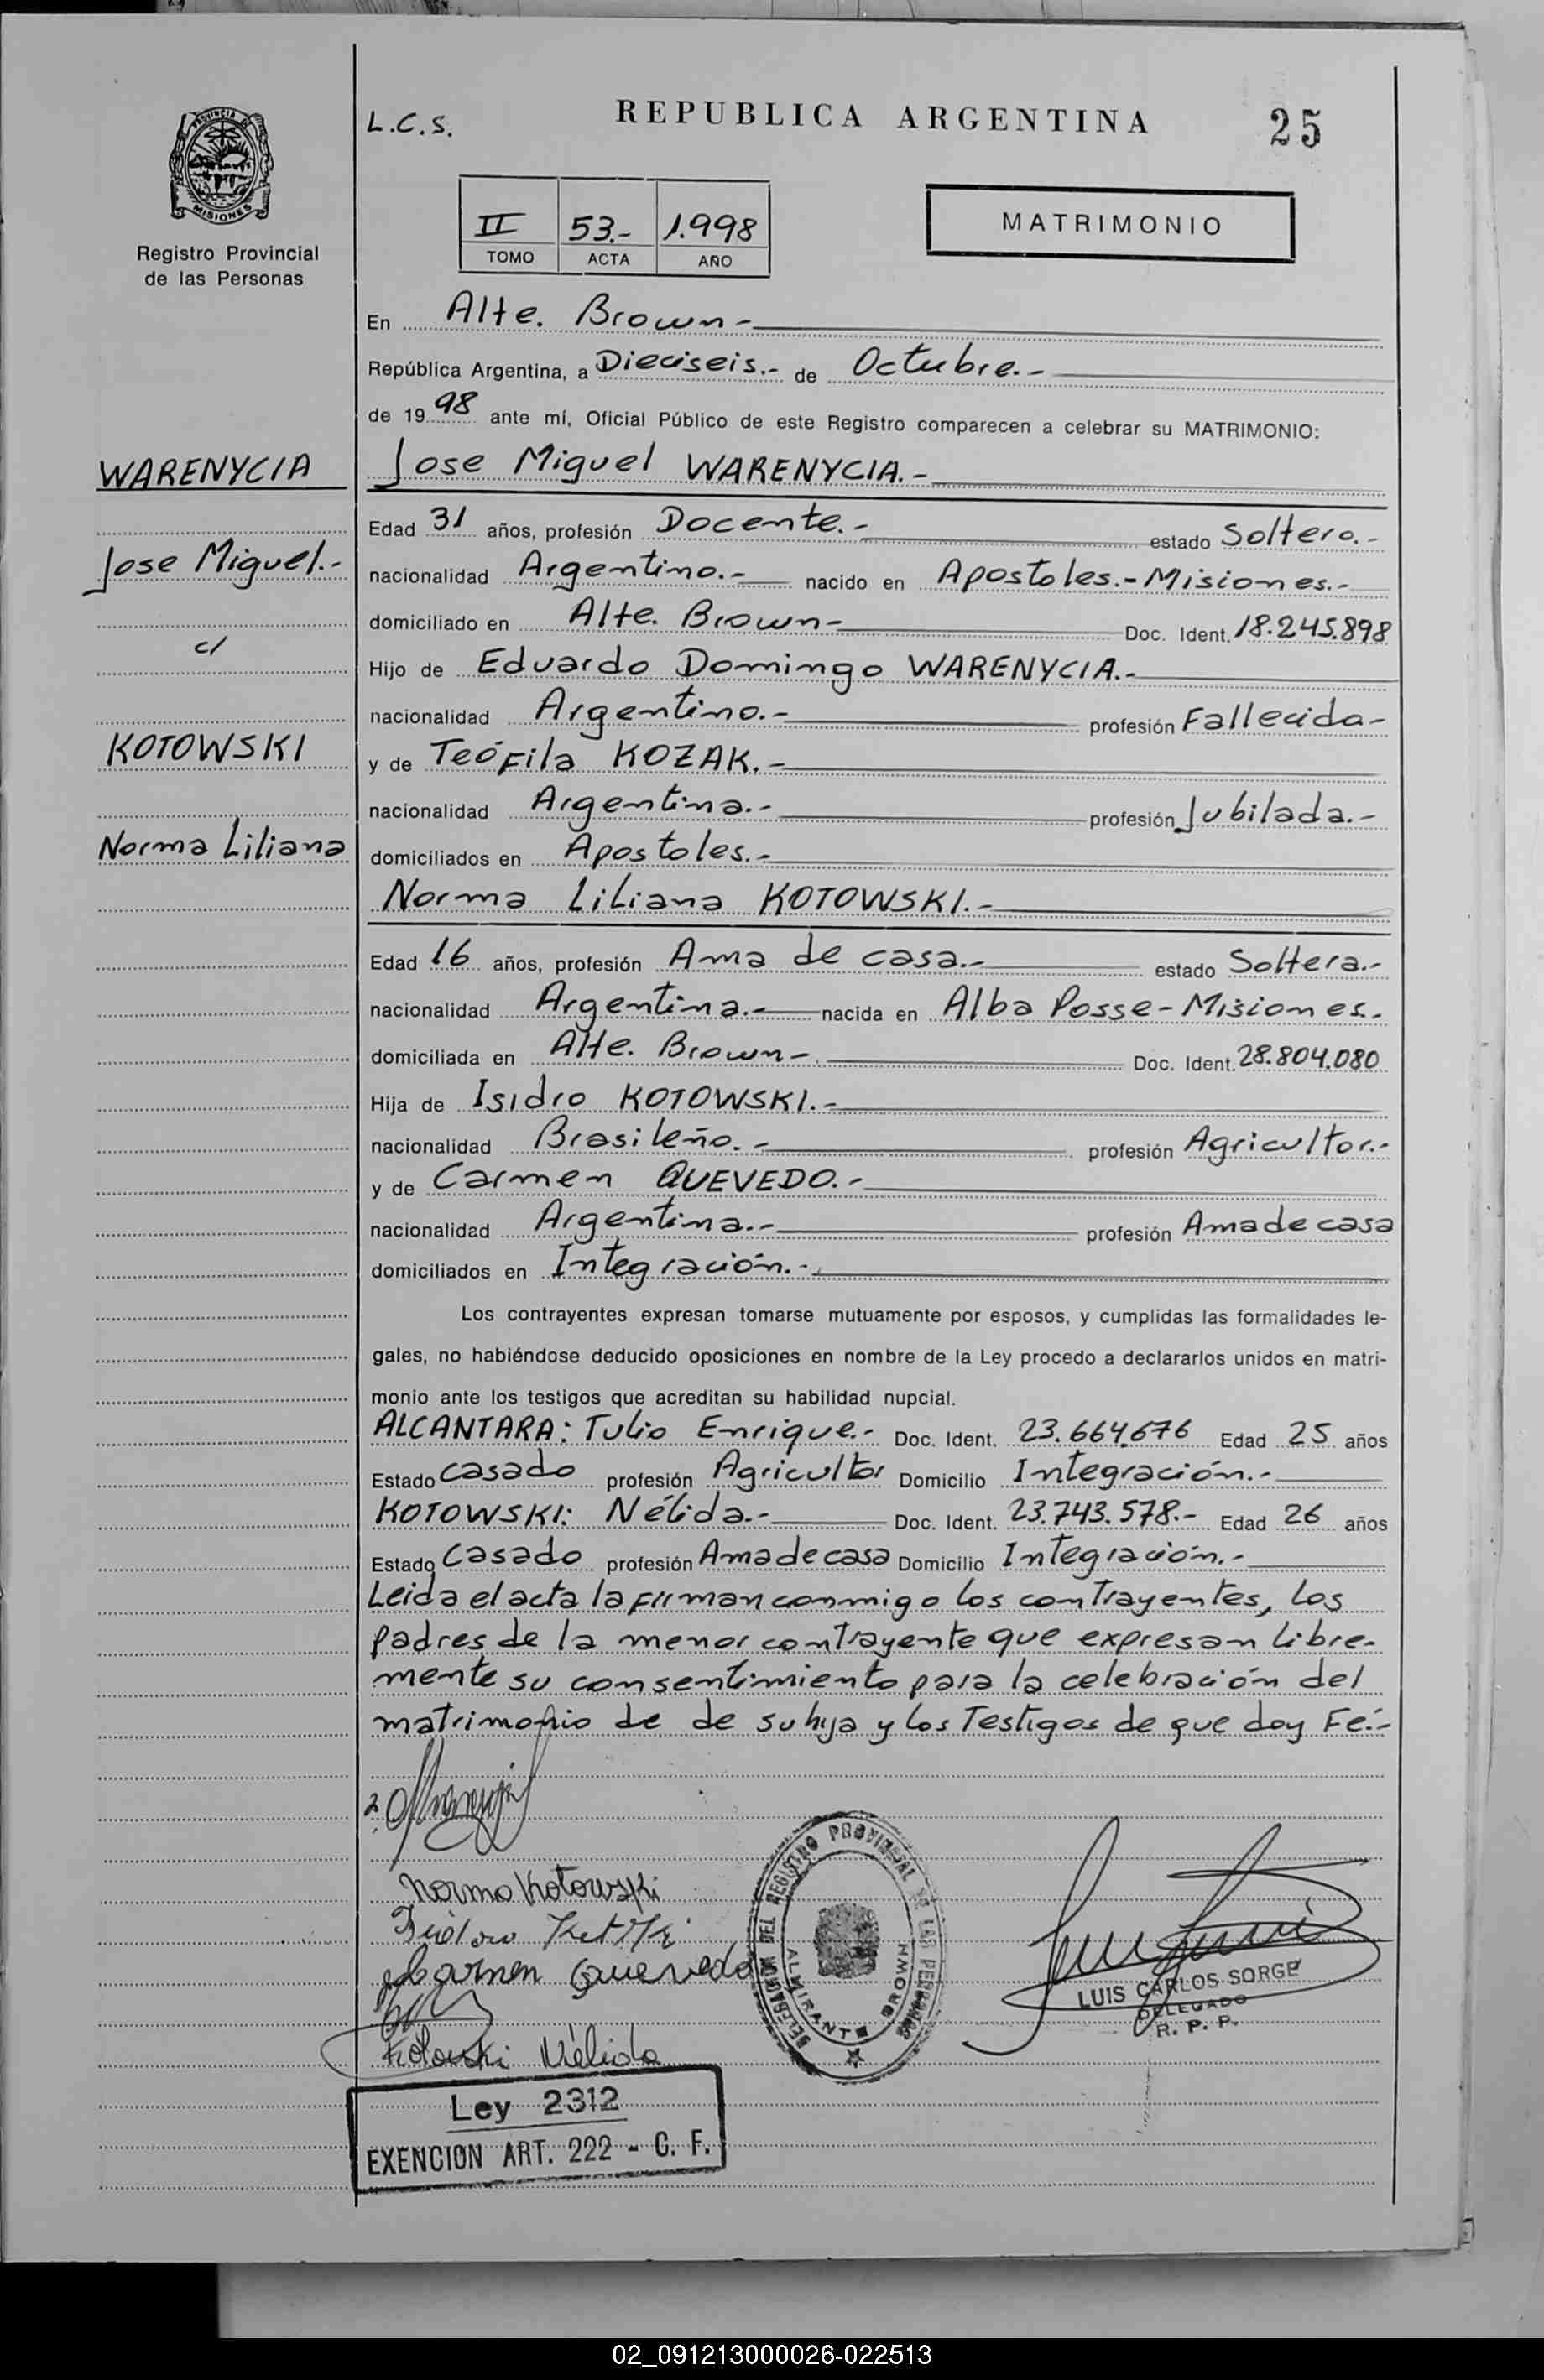 L.C.S.
REPUBLICA ARGENTINA
25
PROVINCIA DE
MISIONES
Registro Provincial
de las Personas
II 53.- 1.998
TOMO ACTA AÑO
MATRIMONIO
En Alte. Brown-
República Argentina, a Dieciseis.- de Octubre.-
de 1998 ante mí, Oficial Público de este Registro comparecen a celebrar su MATRIMONIO:
WARENYCIA
Jose Miguel WARENYCIA.-
Edad 31 años, profesión Docente.- estado Soltero.-
Jose Miguel.-
nacionalidad Argentino.- nacido en Apostoles.-Misiones.-
domiciliado en Alte. Brown- Doc. Ident. 18.245.898
c/
Hijo de Eduardo Domingo WARENYCIA.-
nacionalidad Argentino.- profesión Fallecida-
KOTOWSKI
y de Teófila KOZAK.-
nacionalidad Argentina.- profesión Jubilada.-
Norma Liliana
domiciliados en Apostoles.-
Norma Liliana KOTOWSKI.-
Edad 16 años, profesión Ama de casa.- estado Soltera.-
nacionalidad Argentina.- nacida en Alba Posse-Misiones.-
domiciliada en Alte. Brown- Doc. Ident. 28.804.080
Hija de Isidro KOTOWSKI.-
nacionalidad Brasileño.- profesión Agricultor.-
y de Carmen QUEVEDO.-
nacionalidad Argentina.- profesión Ama de casa
domiciliados en Integración.-
Los contrayentes expresan tomarse mutuamente por esposos, y cumplidas las formalidades le-
gales, no habiéndose deducido oposiciones en nombre de la Ley procedo a declararlos unidos en matri-
monio ante los testigos que acreditan su habilidad nupcial.
ALCANTARA: Tulio Enrique.- Doc. Ident. 23.664.676 Edad 25 años
Estado casado profesión Agricultor Domicilio Integración.-
KOTOWSKI: Nélida.- Doc. Ident. 23.743.578.- Edad 26 años
Estado Casado profesión Ama de casa Domicilio Integración.-
Leida el acta la firman conmigo los contrayentes, los
padres de la menor contrayente que expresan libre-
mente su consentimiento para la celebración del
matrimonio de de su hija y los Testigos de que doy Fé.-
Norma Kotowski
Carmen Quevedo
Kotowski Nélida
DELEGACION DEL REGISTRO PROVINCIAL DE LAS PERSONAS
ALMIRANTE BROWN
LUIS CARLOS SORGE
DELEGADO
R. P. P.
Ley 2312
EXENCION ART. 222 - C. F.
02_091213000026-022513